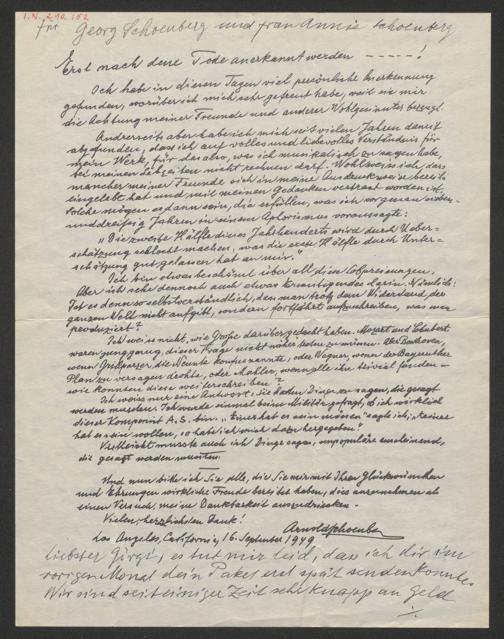 I.N. 210.152
für Georg Schoenberg und frau Annie Schoenberg
Erst nach dem Tode anerkannt werden ----- !
Ich habe in diesen Tagen viel persönliche Anerkennung
gefunden, worüber ich mich sehr gefreut habe, weil sie mir
die Achtung meiner Freunde und anderer Wohlgesinnter bezeugt.
Andrerseits aber habe ich mich seit vielen Jahren damit
abgefunden, dass ich auf volles und liebevolles Verständnis für
mein Werk, für das also, was ich musikalisch zu sagen habe,
bei meinen Lebzeiten nicht rechnen darf. Wohl weiss ich, dass
mancher meiner Freunde sich in meine Ausdrucksweise bereits
eingelebt hat und mit meinen Gedanken vertraut worden ist.
Solche mögen es dann sein, die erfüllen, was ich vor genau sieben-
unddreissig Jahren in einem Aphorismus voraussagte:
"Die zweite Hälfte dieses Jahrhunderts wird durch Ueber-
schätzung schlecht machen, was die erste Hälfte durch Unter-
schätzung gut gelassen hat an mir."
Ich bin etwas beschämt über all diese Lobpreisungen.
Aber ich sehe dennoch auch etwas Ermutigendes darin. Nämlich:
Ist es denn so selbstverständlich, dass man trotz dem Widerstand der
ganzen Welt nicht aufgibt, sondern fortfährt aufzuschreiben, was man
produziert?
Ich weiss nicht, wie Grosse darüber gedacht haben. Mozart und Schubert
waren jung genug, dieser Frage nicht näher treten zu müssen. Aber Beethoven,
wenn Grillparzer die Neunte konfus nannte, oder Wagner, wenn der Bayreuther
Plan zu versagen drohte, oder Mahler, wenn alle ihn trivial fanden —
wie konnten diese weiterschreiben?
Ich weiss nur eine Antwort: Sie hatten Dinge zu sagen, die gesagt
werden mussten. Ich wurde einmal beim Militär gefragt, ob ich wirklich
dieser Komponist A.S. bin. "Einer hat es sein müssen" sagte ich, "keiner
hat es sein wollen, so habe ich mich dazu hergegeben."
Vielleicht musste auch ich Dinge sagen, unpopuläre anscheinend,
die gesagt werden mussten.
Und nun bitte ich Sie alle, die Sie mir mit Ihren Glückwünschen
und Ehrungen wirkliche Freude bereitet haben, dies anzunehmen als
einen Versuch, meine Dankbarkeit auszudrücken.
Vielen, herzlichsten Dank!
Arnold Schoenberg
Los Angeles, California, 16. September 1949
liebster Görgi, es tut mir leid, dass ich dir im
vorigen Monat dein Paket erst spät senden konnte.
Wir sind seit einiger Zeit sehr knapp an Geld